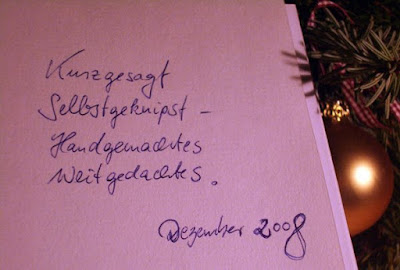 Kurzgesagt
Selbstgeknipst –
Handgemachtes
Weitgedachtes.
Dezember 2008